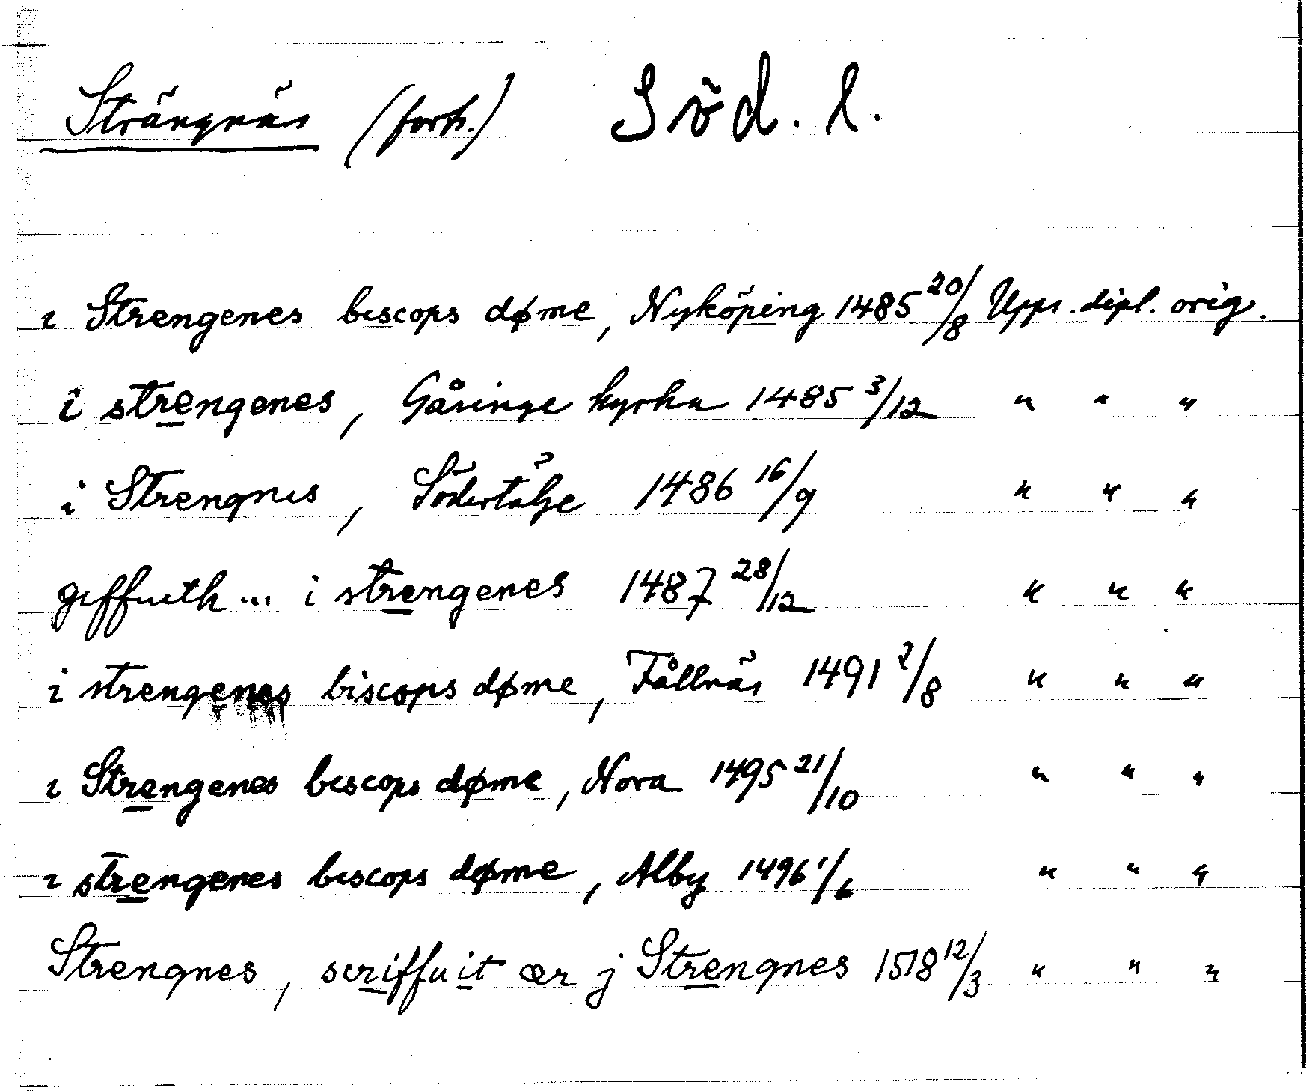 Strängnäs (forts.) Söd. l.
i Strengenes biscops døme, Nyköping 1485 20/8 Upps. dipl. orig.
i strengenes, Gåsinge kyrka 1485 3/12 " " "
i Strengnes, Södertälje 1486 16/9 " " "
giffueth ... i strengenes 1487 28/12 " " "
i strengenes biscops døme, Fållnäs 1491 2/8 " " "
i Strengenes biscops døme, Nora 1495 21/10 " " "
i strengenes biscops døme, Alby 1496 1/6 " " "
Strengnes, scriffuit ær j Strengnes 1518 12/3 " " "